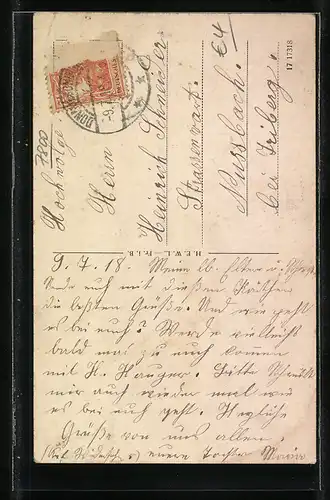 €4
17 17318
7800
DON
-9.7
Hochwolge
Herrn
Heinrich Schneider
Strassenwart.
Nussbach.
bei Triberg.
H.E.W.L. Fr.i.B.
9.7.18. Meine lb. Eltern u.
Sende euch mit diesen Kärtchen
die besten Grüße. Und wie geht
es bei euch? Werde vielleicht
bald mal zu euch komen
mit H. Hauger. Bitte schreibt
mir auch wieder mal wie
es bei euch geht. Herzliche
Grüße von uns allen.
eure Tochter Maria